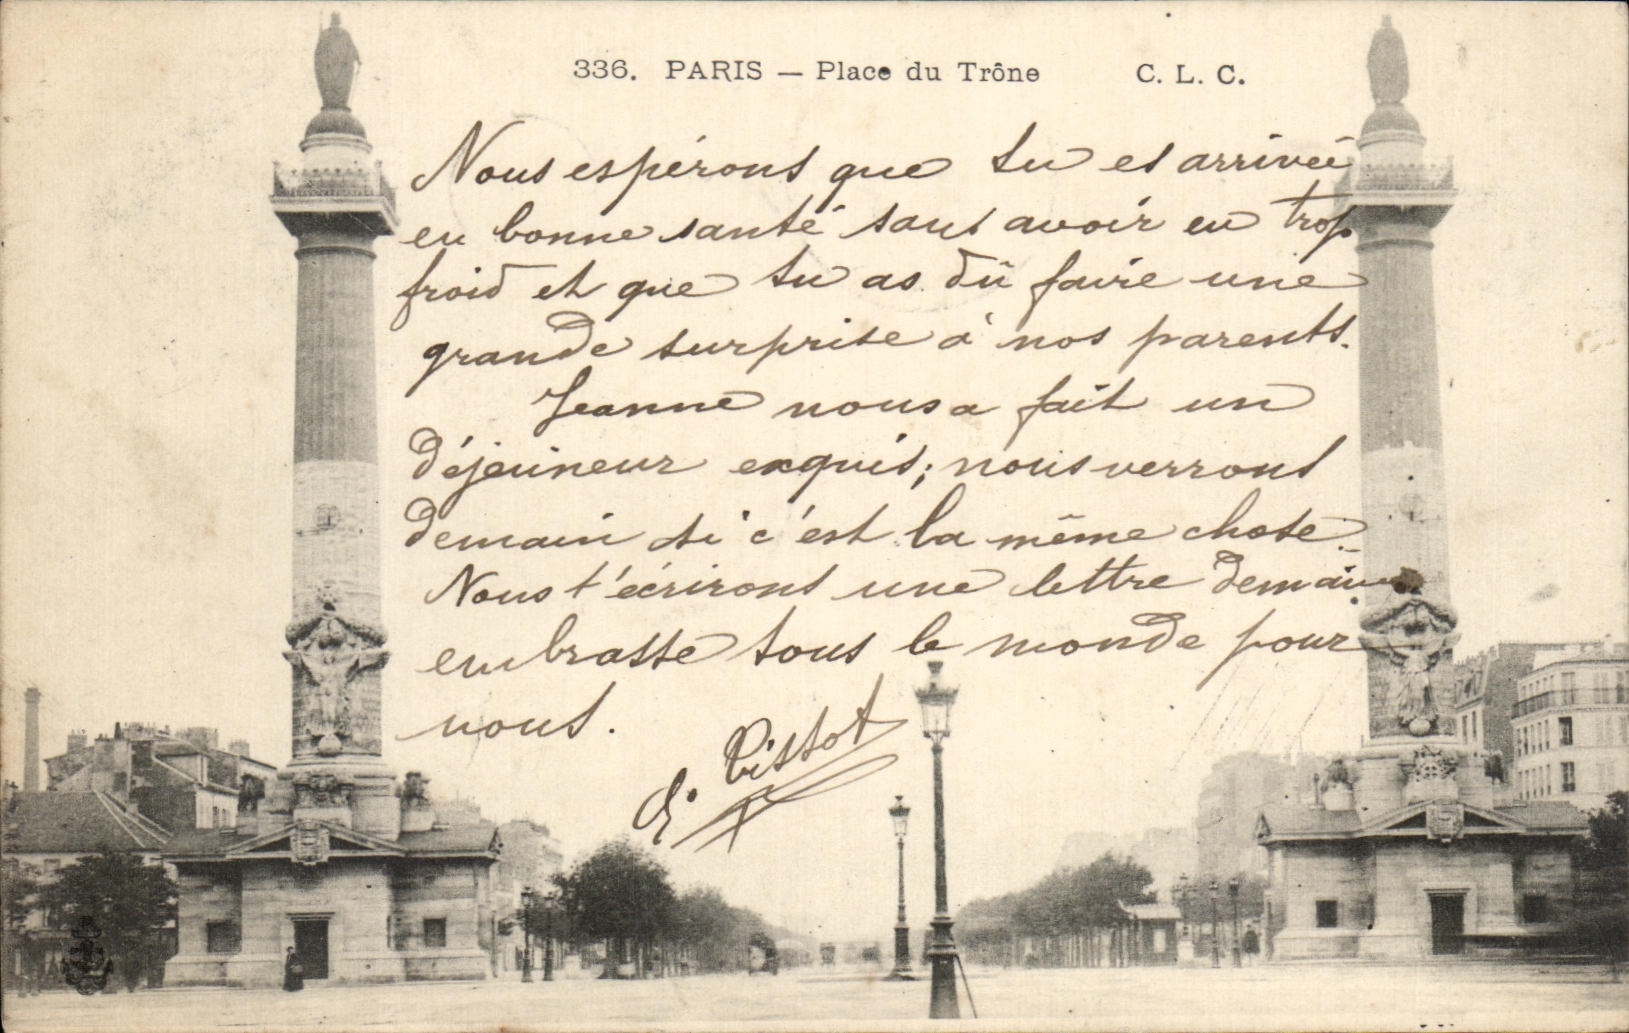 336. PARIS — Place du Trône C. L. C.
Nous espérons que tu es arrivée
en bonne santé sans avoir eu trop
froid et que tu as dû faire une
grande surprise à nos parents.
Jeanne nous a fait un
déjeuneur exquis; nous verrons
demain si c'est la même chose.
Nous t'écrirons une lettre demain
embrasse tous le monde pour
nous.